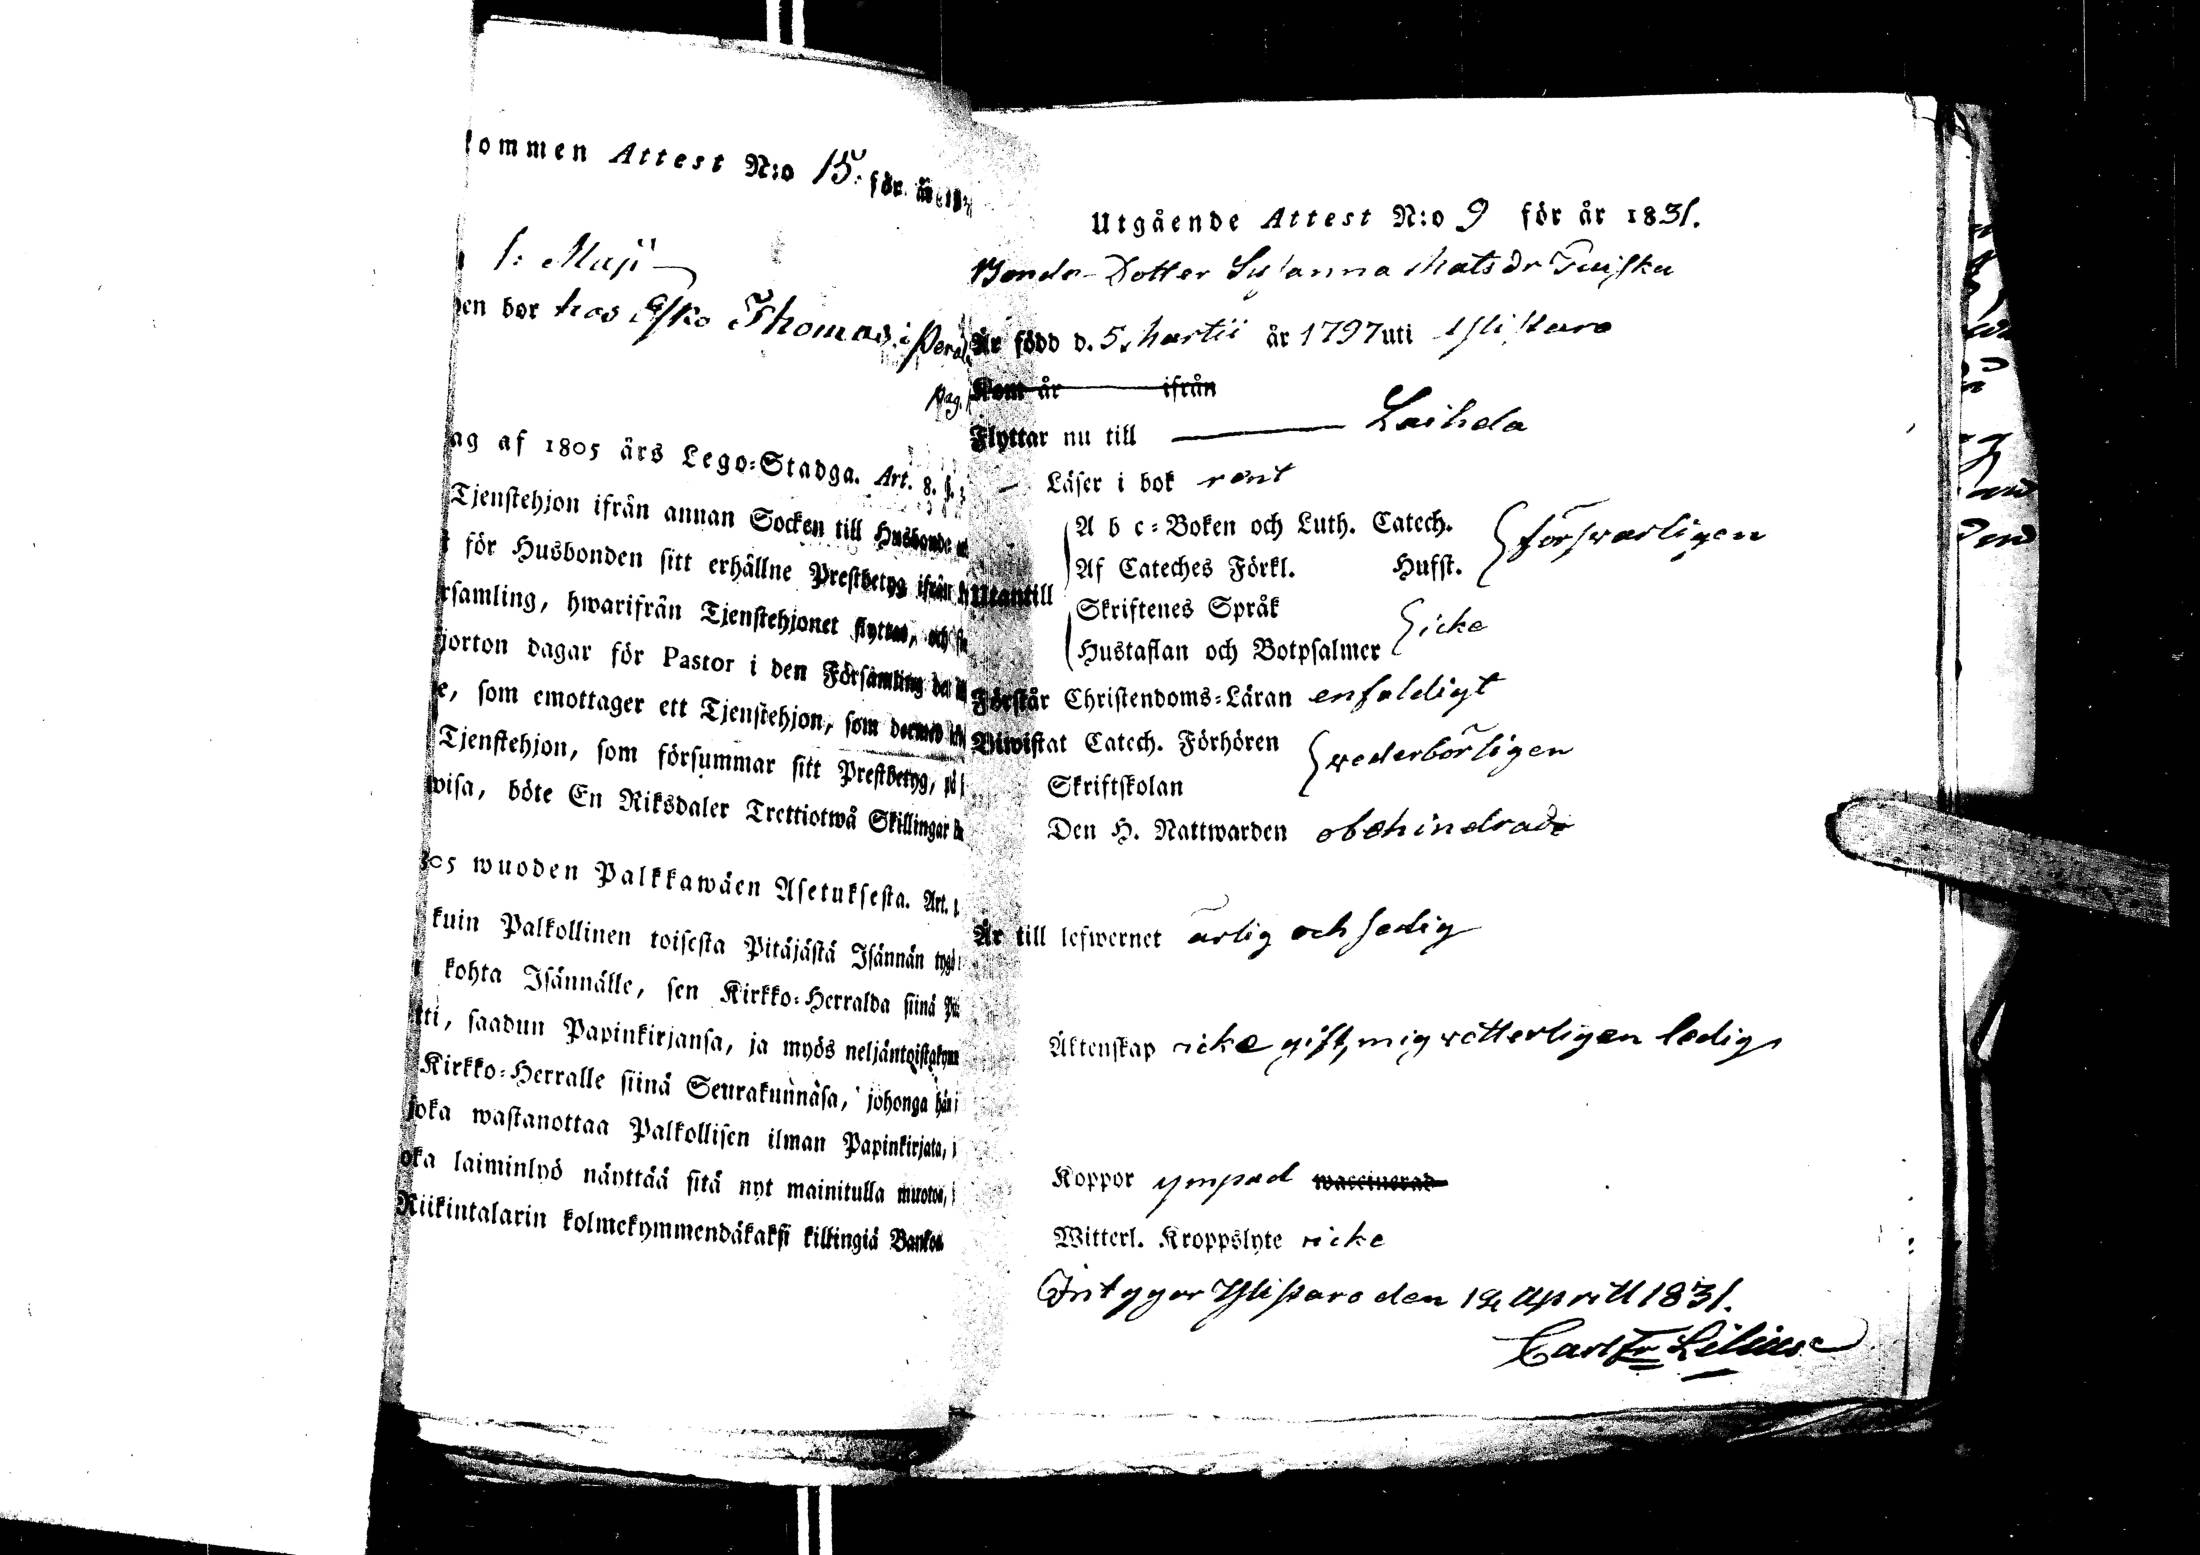 kommen Attest N:o 15: för år 183
1: Maji
en bor hos Esko Thomas i Peräl
pag.
ag af 1805 års Lego-Stadga. Art. 8. §.
Tjenstehjon ifrån annan Socken till Husbonde
för Husbonden sitt erhållne Prestbetyg ifrån
rsamling, hwarifrån Tjenstehjonet flyttar, och
jorton dagar för Pastor i den Församling der
e, som emottager ett Tjenstehjon, som dermed
Tjenstehjon, som försummar sitt Prestbetyg, på
wisa, böte En Riksdaler Trettiotwå Skillingar
805 wuoden Palkkawäen Asetuksesta. Art.
kuin Palkollinen toisesta Pitäjästä Isännän tygö
kohta Isännälle, sen Kirkko-Herralda siinä
tti, saadun Papinkirjansa, ja myös neljäntoistakym
Kirkko-Herralle siinä Seurakunnasa, johonga hän
joka wastanottaa Palkollisen ilman Papinkirjata,
oka laiminlyö näyttää sitä nyt mainitulla muotoa,
Riikintalarin kolmekymmendäkaksi killingiä Bankos
Utgående Attest N:o 9 för år 1831.
Bonde-Dotter Susanna Matsdr Tuisku
Är född d. 5 Martii år 1797 uti Ylistaro
Kom år ifrån
Flyttar nu till Laihela
Läser i bok rent
Utantill
A b c-Boken och Luth. Catech.
Af Cateches Förkl. Hufst. försvarligen
Skriftenes Språk
Hustaflan och Botpsalmer icke
Förstår Christendoms-Läran enfaldigt
Biwistat Catech. Förhören
Skriftskolan wederbörligen
Den H. Nattwarden obehindrad
Är till lefwernet ärlig och sedig
Äktenskap icke gift, mig vetterligen ledig
Koppor ympad waccinerad
Witterl. Kroppslyte icke
Intygar Ylistaro den Aprill 1831.
Carl Fr Lilius